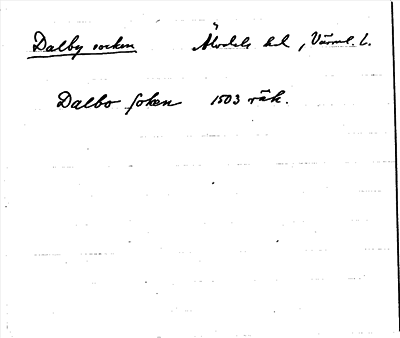 Dalby socken Älvdals hd, Värml. l.
Dalbo soken 1503 räk.